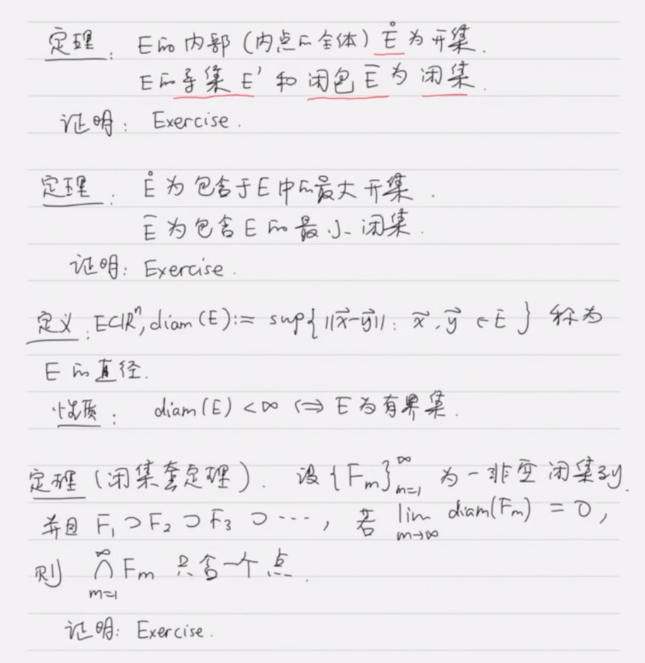 定理: E的内部(内点的全体) E̊ 为开集.
E的导集 E' 和闭包 E̅ 为闭集.
证明: Exercise.
定理: E̊ 为包含于E中的最大开集.
E̅ 为包含E的最小闭集.
证明: Exercise.
定义: E⊂ℝⁿ, diam(E):= sup{||x⃗-y⃗||: x⃗,y⃗ ∈E} 称为
E的直径.
性质: diam(E)<∞ ⇔ E为有界集.
定理(闭集套定理). 设{F_m}_{m=1}^∞ 为一非空闭集列,
并且 F₁⊃F₂⊃F₃⊃⋯, 若 lim_{m→∞} diam(F_m)=0,
则 ∩_{m=1}^∞ F_m 只含一个点.
证明: Exercise.